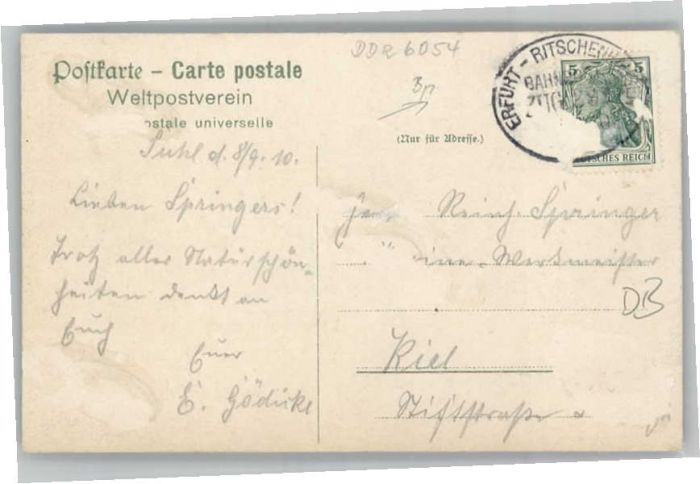 DDR 6054
Postkarte – Carte postale
Weltpostverein
ostale universelle
(Nur für Adresse.)
ERFURT - RITSCHENH
BAHN
5 5
TSCHES REICH
Suhl d. 8/9. 10.
Lieben Springers!
Trotz aller Naturschön-
heiten denkt an
Euch
Euer
E. Gödicke
Reinh. Springer
ine-Werkmeister
DB
Kiel
Stiftstraße